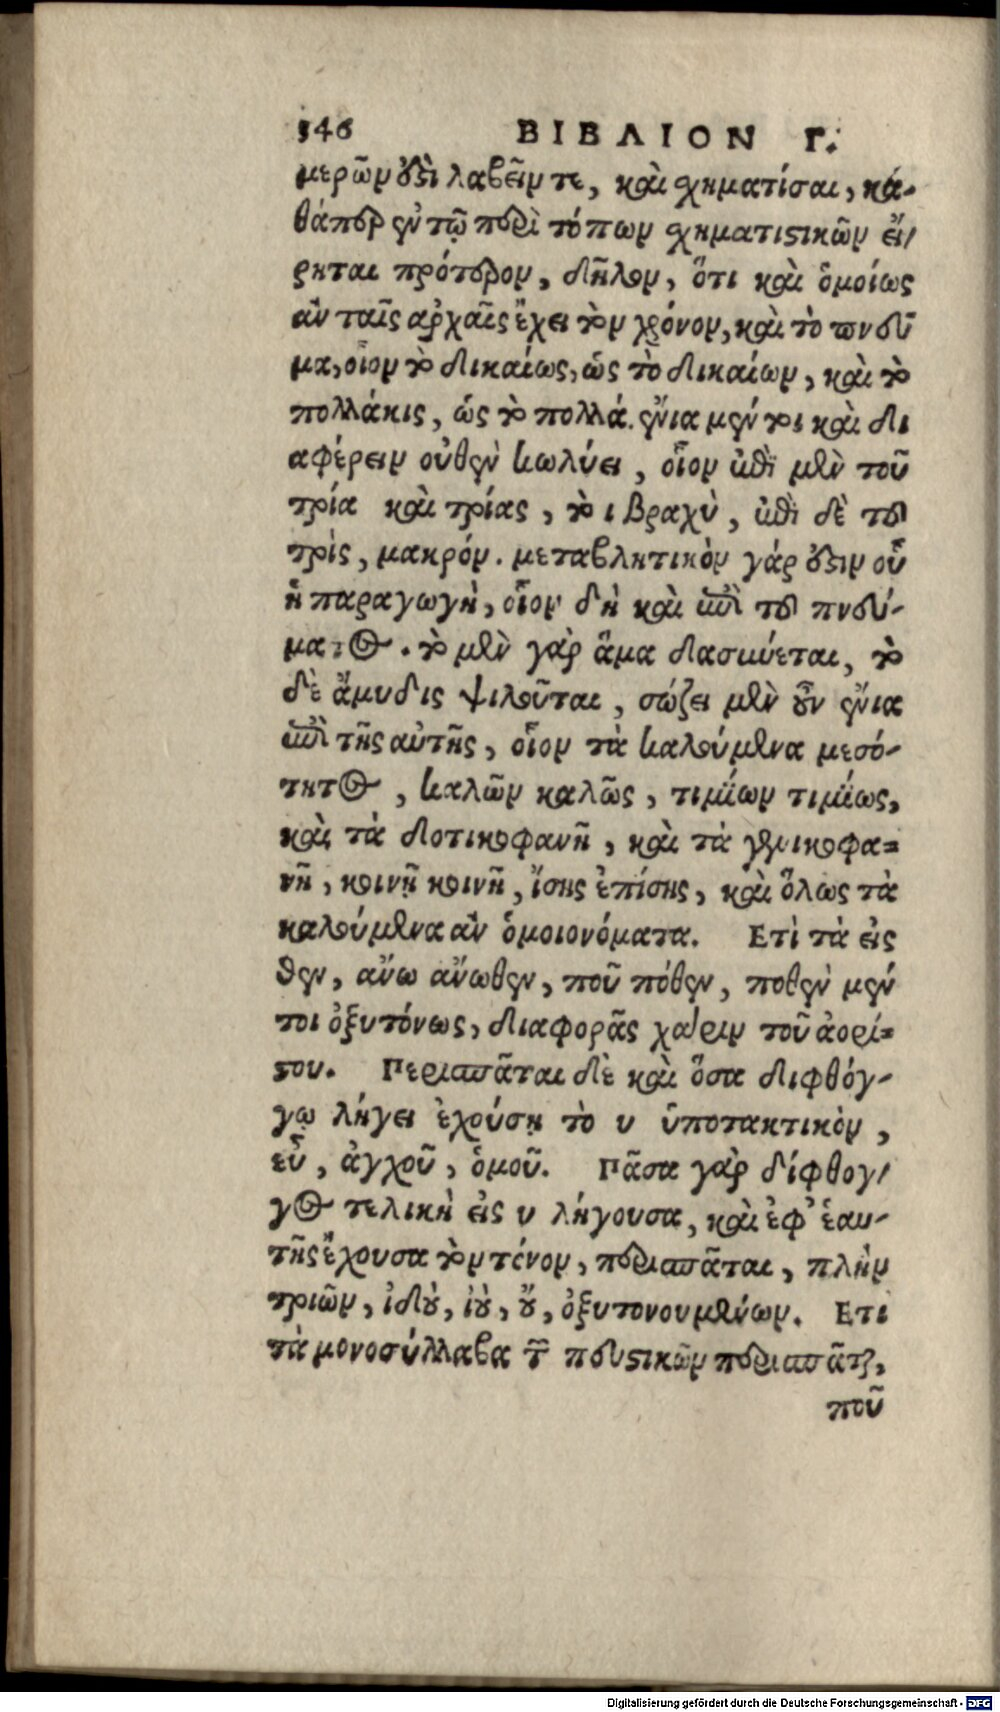 146 ΒΙΒΛΙΟΝ Γ.
μερῶν ἐστὶ λαβεῖν τε, καὶ σχηματίσαι, κα-
θάπερ ἐν τῷ περὶ τόπων σχηματιστικῶν εἴ-
ρηται πρότερον, δῆλον, ὅτι καὶ ὁμοίως
ἂν ταῖς ἀρχαῖς ἔχει τὸν χρόνον, καὶ τὸ πνεῦ
μα, οἷον τὸ δικαίως, ὡς τὸ δικαίων, καὶ τὸ
πολλάκις, ὡς τὸ πολλά. ἔνια μέν τοι καὶ δι
αφέρειν οὐθὲν κωλύει, οἷον ἐπὶ μὲν τοῦ
τρία καὶ τρίας, τὸ ι βραχὺ, ἐπὶ δὲ τοῦ
τρὶς, μακρόν. μεταβλητικὸν γάρ ἐστιν οὗ
ἡ παραγωγὴ, οἷον δὴ καὶ ἐπὶ τοῦ πνεύ-
ματος. τὸ μὲν γὰρ ἅμα δασύνεται, τὸ
δὲ ἄμυδις ψιλοῦται, σώζει μὲν οὖν ἔνια
ἐπὶ τῆς αὐτῆς, οἷον τὰ καλούμενα μεσό-
τητος, καλῶν καλῶς, τιμίων τιμίως,
καὶ τὰ δοτικοφανῆ, καὶ τὰ γενικοφα=
νῆ, κοινῇ κοινῆ, ἴσης ἐπίσης, καὶ ὅλως τὰ
καλούμενα ἂν ὁμοιονόματα. Ετὶ τὰ εἰς
θεν, ἄνω ἄνωθεν, ποῦ πόθεν, ποθὲν μέν
τοι ὀξυτόνως, διαφορᾶς χάριν τοῦ ἀορί=
στου. Περισπᾶται δὲ καὶ ὅσα διφθόγ-
γῳ λήγει ἐχούσῃ τὸ υ ὑποτακτικὸν,
εὖ, ἀγχοῦ, ὁμοῦ. Πᾶσα γὰρ δίφθογ-
γος τελικὴ εἰς υ λήγουσα, καὶ ἐφ' ἑαυ-
τῆς ἔχουσα τὸν τόνον, περισπᾶται, πλὴν
τριῶν, ἰδού, ἰού, οὔ, ὀξυτονουμένων. Ετι
τὰ μονοσύλλαβα τῶν πευστικῶν περισπᾶται,
ποῦ
Digitalisierung gefördert durch die Deutsche Forschungsgemeinschaft - DFG